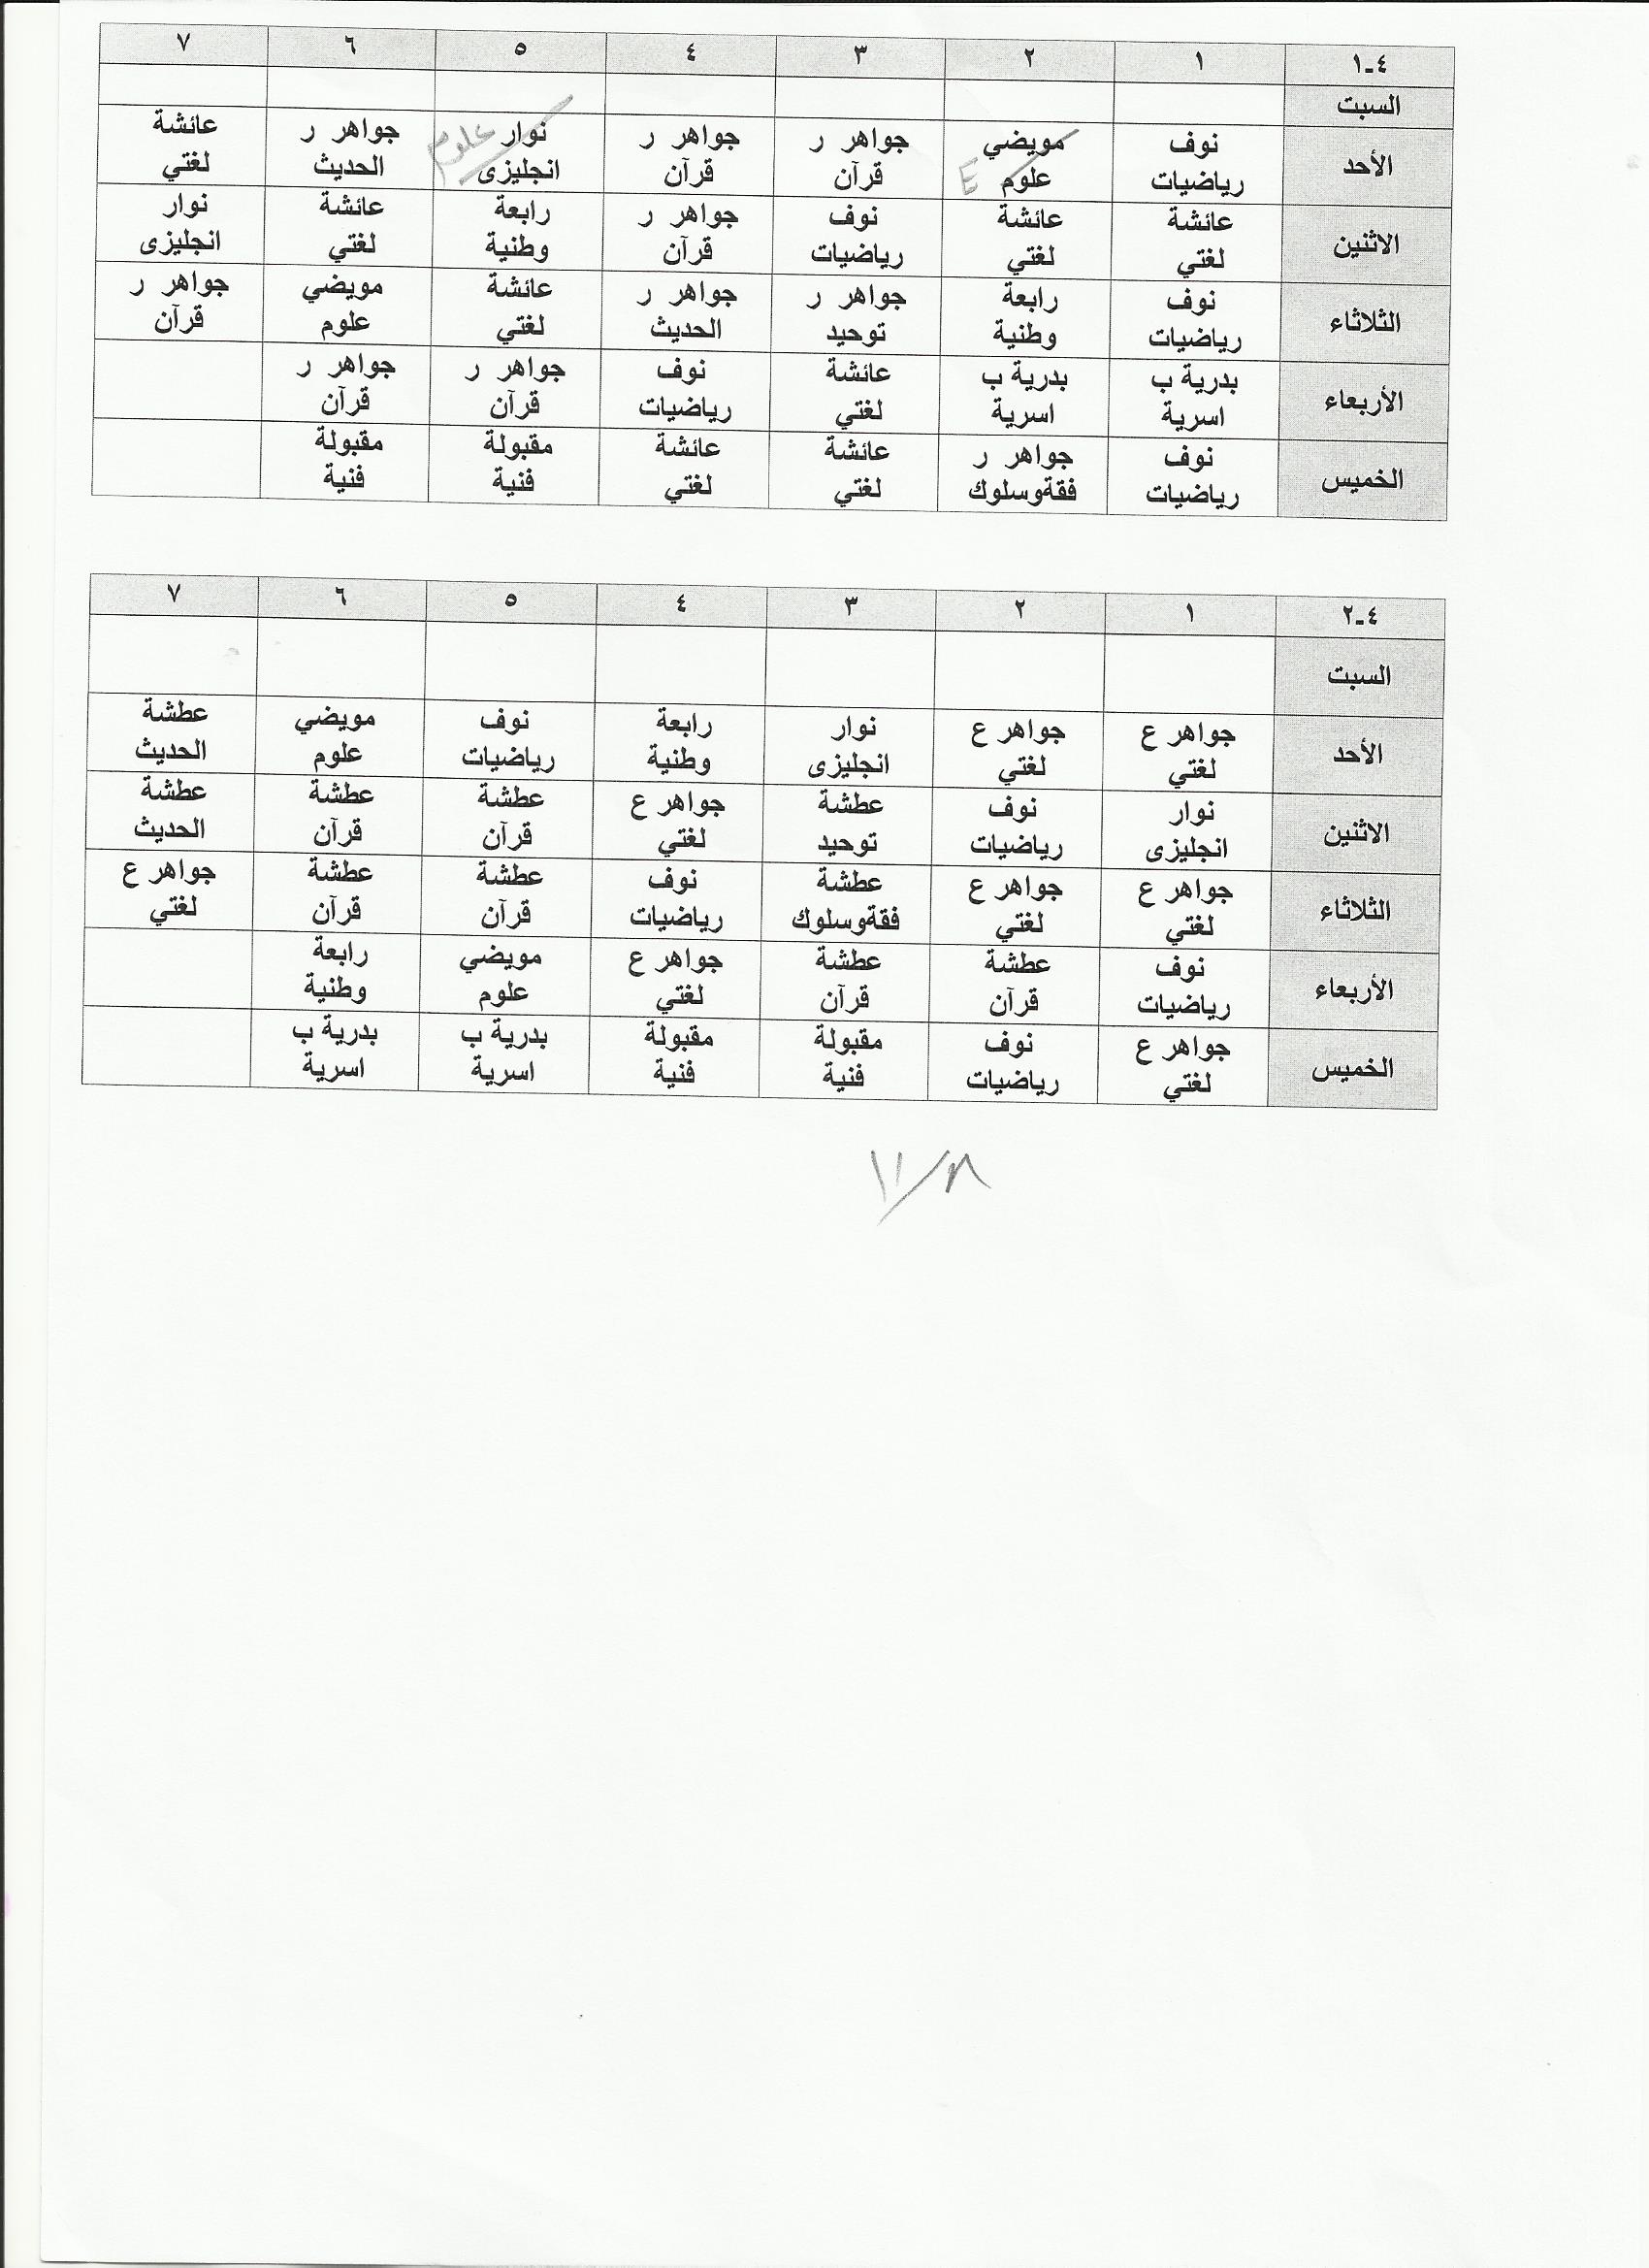 ٤-١ ١ ٢ ٣ ٤ ٥ ٦ ٧
السبت
الأحد
نوف مويضي جواهر ر جواهر ر نوار علوم جواهر ر عائشة
رياضيات علوم E قرآن قرآن انجليزى الحديث لغتي
الاثنين
عائشة عائشة نوف جواهر ر رابعة عائشة نوار
لغتي لغتي رياضيات قرآن وطنية لغتي انجليزى
الثلاثاء
نوف رابعة جواهر ر جواهر ر عائشة مويضي جواهر ر
رياضيات وطنية توحيد الحديث لغتي علوم قرآن
الأربعاء
بدرية ب بدرية ب عائشة نوف جواهر ر جواهر ر
اسرية اسرية لغتي رياضيات قرآن قرآن
الخميس
نوف جواهر ر عائشة عائشة مقبولة مقبولة
رياضيات فقةوسلوك لغتي لغتي فنية فنية
٤-٢ ١ ٢ ٣ ٤ ٥ ٦ ٧
السبت
الأحد
جواهر ع جواهر ع نوار رابعة نوف مويضي عطشة
لغتي لغتي انجليزى وطنية رياضيات علوم الحديث
الاثنين
نوار نوف عطشة جواهر ع عطشة عطشة عطشة
انجليزى رياضيات توحيد لغتي قرآن قرآن الحديث
الثلاثاء
جواهر ع جواهر ع عطشة نوف عطشة عطشة جواهر ع
لغتي لغتي فقةوسلوك رياضيات قرآن قرآن لغتي
الأربعاء
نوف عطشة عطشة جواهر ع مويضي رابعة
رياضيات قرآن قرآن لغتي علوم وطنية
الخميس
جواهر ع نوف مقبولة مقبولة بدرية ب بدرية ب
لغتي رياضيات فنية فنية اسرية اسرية